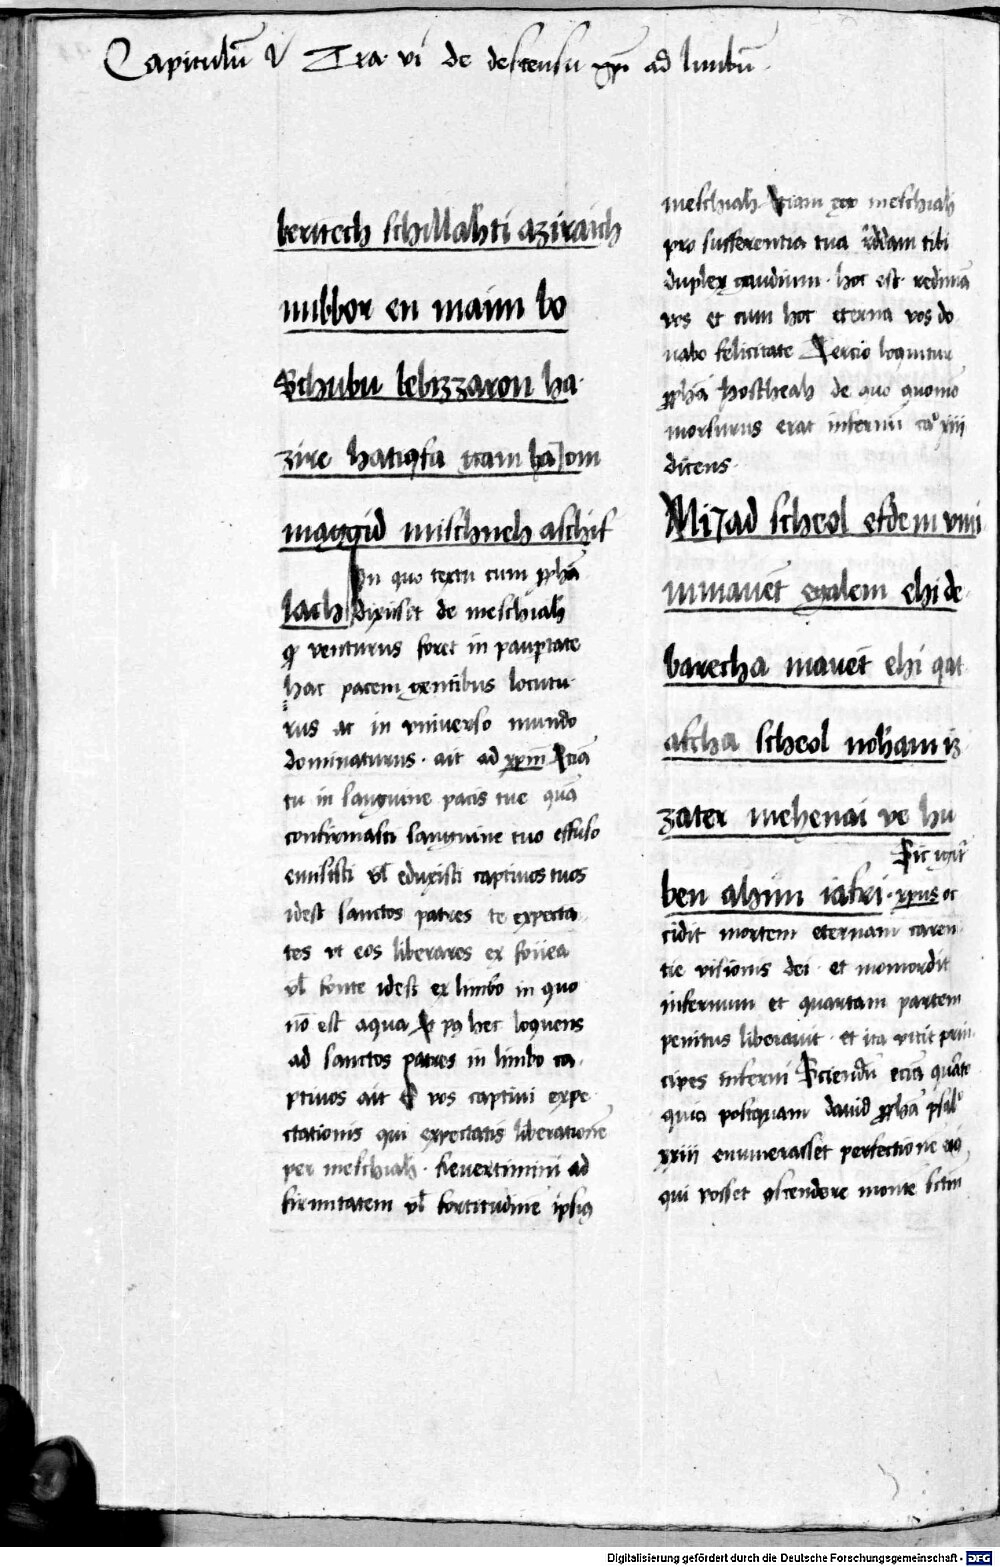 Capitulū v Tra. vi de descensu xpi ad limbū.
beritech schillahti aziraich
mibbor en maim bo
Schubu lebizzaron ha-
zire hatiqfa gam haiom
maggid mischneh aschif
In quo textu cum ꝓpha
lach dixisset de meschiah
q venturus foret in paupertate
hac pacem gentibus locutu-
rus ac in vniverso mundo
dominaturus. ait ad xpm Etiā
tu in sanguine pacis tue quā
confirmasti sanguine tuo effuso
emisisti vl eduxisti captivos tuos
idest sanctos patres te expecta-
tes vt eos liberares ex fouea
vl fonte idest ex limbo in quo
nō est aqua Et p9 hec loquens
ad sanctos patres in limbo ca-
ptivos ait O vos captivi expe-
ctationis qui expectatis liberationē
per meschiah. Revertimini ad
firmitatem vl fortitudinē ipsius
meschiah Etiam ego meschiah
pro sufferentia tua reddam tibi
duplex gaudium. hoc est. redimā
vos et cum hoc eterna vos do
nabo felicitate Tercio loquitur
ꝓpha hostheah de quo quomō
morsurus erat infernū ca° xiii
dicens.
Mijad scheol efdem vmi
mmavet egalem ehi de-
barecha mavet ehi qat
afcha scheol noham is
zater mehenai ve hu
Sic igit
ben ahim iafri. xpus oc
cidit mortem eternam caren-
tie visionis dei. et momordit
infernum et quartam partem
penitus liberavit. et ita vicit prin-
cipes inferni Sciendū eciā quarto
quia postquam david ꝓpha psal°
xxiii enumerasset perfectione eiō
qui posset ascendere monte sctm